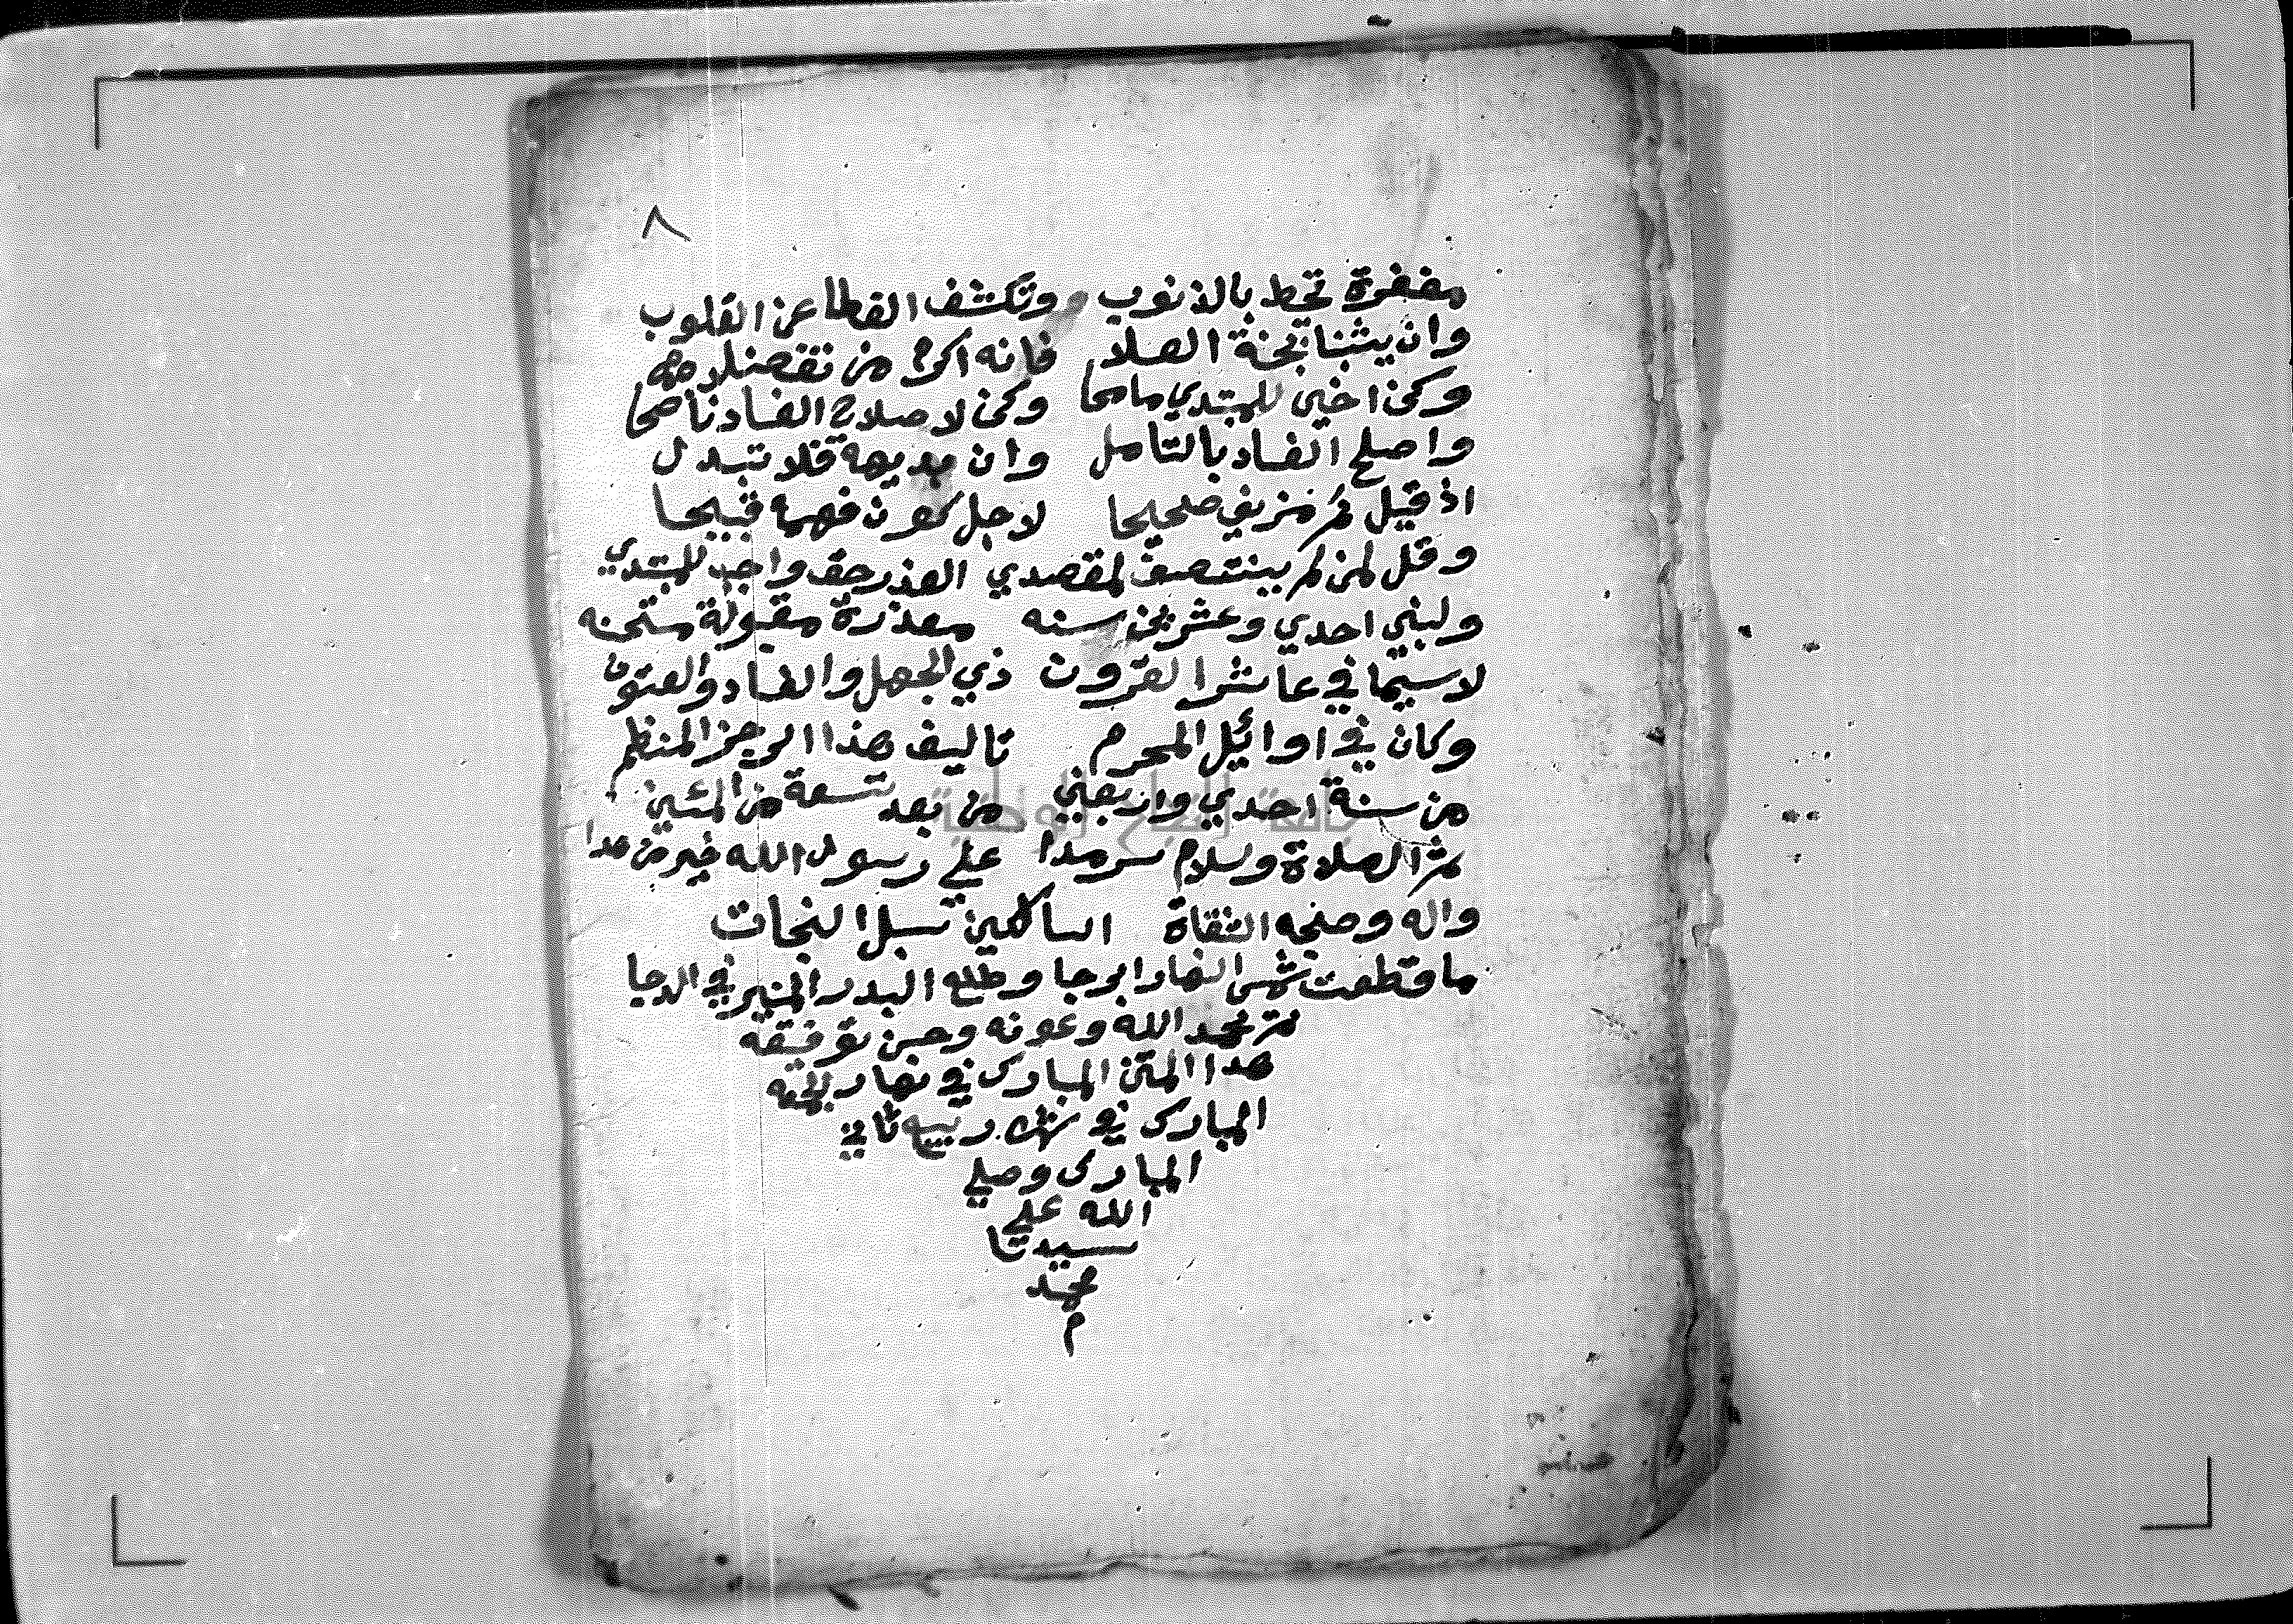 ٨
مغفرة تحط بالذنوب وتكشف الغطا عن القلوب
وان يثبنا بجنة العلا فانه اكرم من تفضلا
وكن اخي للمبتدي مامحا وكن لاصلاح الفساد ناصحا
واصلح الفساد بالتامل وان بديهة فلا تبدل
اذ قيل كم مزيف صحيحا لاجل كون فهمه قبيحا
وقل لمن لم ينتصف لمقصدي العذر حق واجب للمبتدي
ولبني احدي وعشرين سنه معذرة مقبولة مستحسنه
لاسيما في عاشر القرون ذي الجهل والفساد والفتون
وكان في اوائل المحرم تاليف هذا الرجز المنظم
من سنة احدي واربعين من بعد تسعة من المئين
ثم الصلاة وسلام سرمدا علي رسول الله خير من هدا
واله وصحبه الثقاة السالكين سبل النجات
ما قطعت شمس النهار ابرجا وطلع البدر المنير في الدجا
تم بحمد الله وعونه وحسن توفيقه
هدا المتن المبارك في نهار
المبارك في شهر ربيع ثاني
المبارك وصلي
الله علي
سيدنا
محمد
م
جامعة النجاح الوطنية